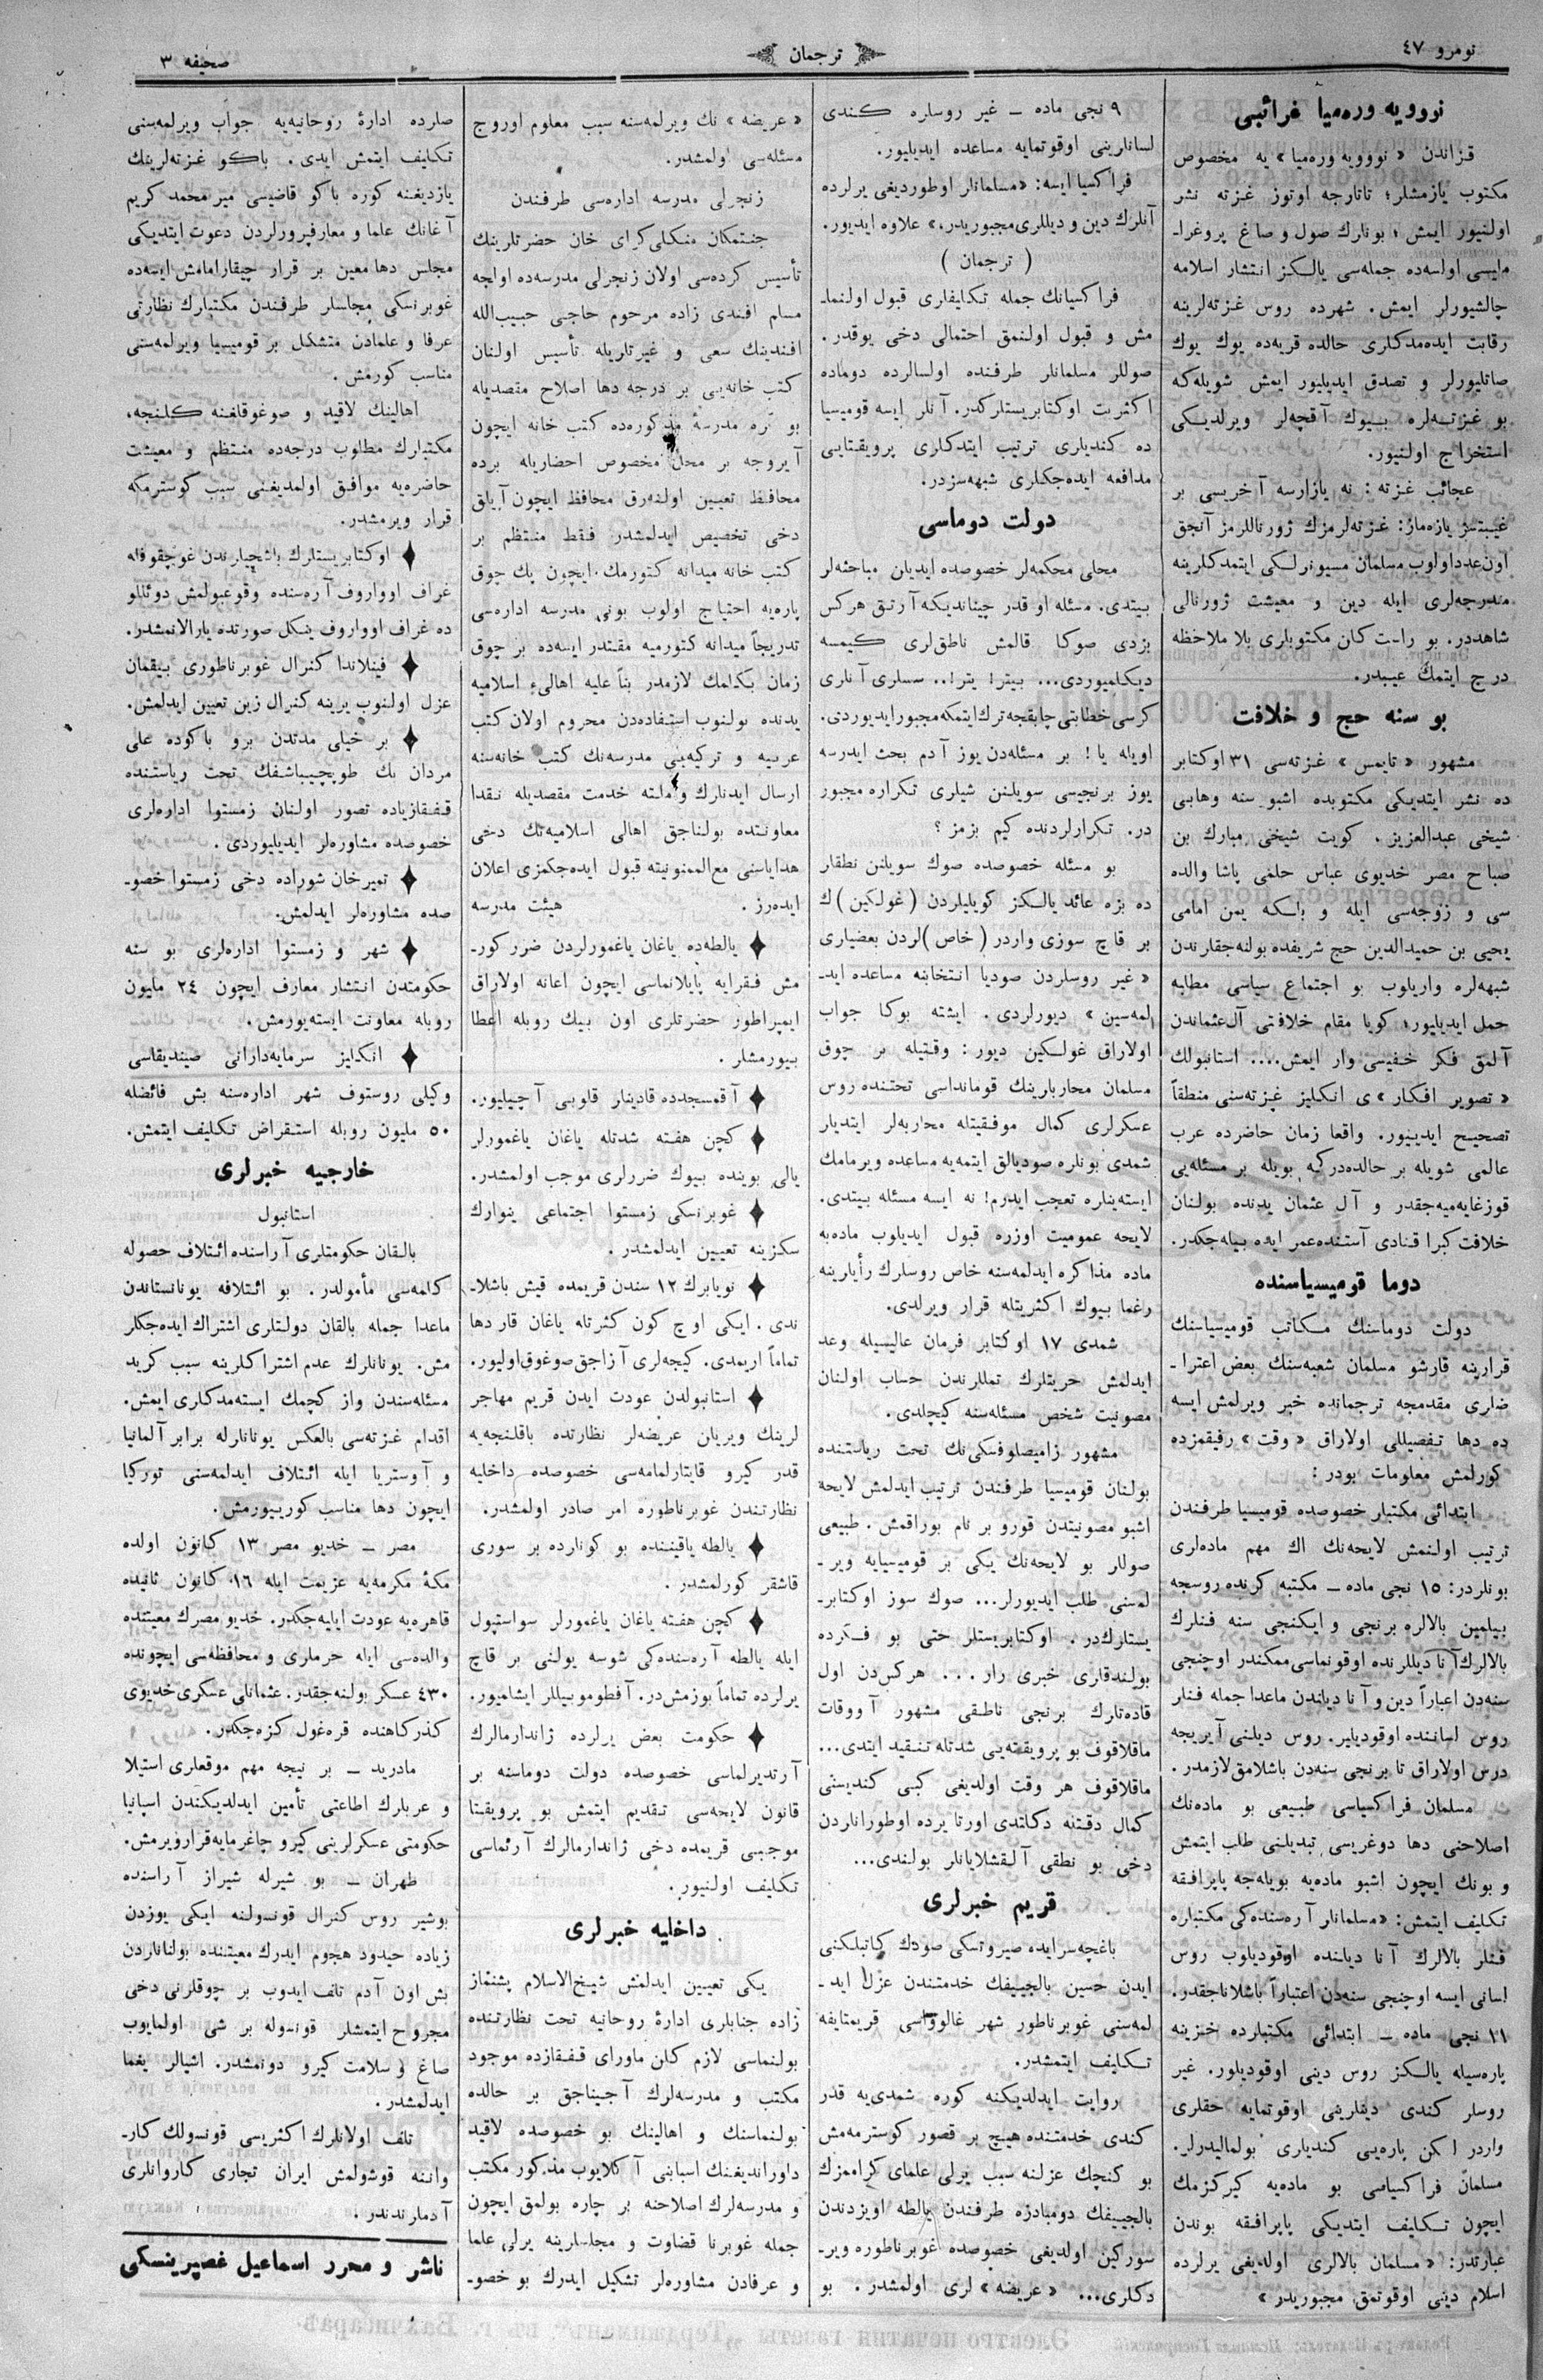 نومرو ٤٧
ترجمان
صحیفه ٣
نوویه ورەمیا غرائبی
قزاندن «نووویه ورەمیا» یه مخصوص
مكتوب یازمشلر؛ تاتارجه اوتوز غزته نشر
اولنیور ایمش؛ بونلرك صول و صاغ پروغرا-
مایسی اولسه‌ده جمله‌سی یالكز انتشار اسلامه
چالشیورلر ایمش. شهرده روس غزته‌لرینه
رقابت ایده‌مدكلری حالده قریه‌ده یوك یوك
صاتلیورلر و تصدق ایدیلیور ایمش شویله‌كه
بو غزته‌لره بیوك آقچه‌لر ویرلدیكی
استخراج اولنیور.
عجائب غزته: نه یازارسه آخریسی بر
غیبتسز یازه‌ماز: غزته‌لرمزك ژورناللرمز آنجق
اون‌عدد اولوب مسلمان مسیونرلكی ایتمدكلرینه
مندرجه‌لری ایله دین و معیشت ژورنالی
شاهددر. بو راست كان مكتوبلری بلا ملاحظه
درج ایتمك عیبدر.
بو سنه حج و خلافت
مشهور «تایمس» غزته‌سی ٣١ اوكتابر
ده نشر ایتدیكی مكتوبده اشبو سنه وهابی
شیخی عبدالعزیز. كویت شیخی مبارك بن
صباح مصر خدیوی عباس حلمی پاشا والده
سی و زوجه‌سی ایله و باسكه یمن امامی
یحیی بن حمیدالدین حج شریفده بولنه‌جقلرندن
شبهه‌لره واریلوب بو اجتماع سیاسی مطالبه
حمل ایدیلیور؛ كویا مقام خلافتی آل‌عثماندن
آلمق فكر خفیسی وار ایمش.... استانبولك
«تصویر افكار» ی انكلیز غزته‌سنی منطقاً
تصحیح ایدییور. واقعا زمان حاضرده عرب
عالمی شویله بر حالده‌در كه بویله بر مسئله‌یی
قوزغایه‌میه‌جقدر و آل عثمان یدنده بولنان
خلافت كبرا قنادی آستنده‌عمر ایده بیله‌جكدر.
دوما قومیسیاسنده
دولت دوماسنك مكاتب قومیسیاسنك
قرارینه قارشو مسلمان شعبه‌سنك بعض اعترا-
ضاری مقدمجه ترجمانده خبر ویرلمش ایسه
ده دها تفصیللی اولاراق «وقت» رفیقمزده
كورلمش معلومات بودر:
ابتدائی مكتبلر خصوصده قومیسیا طرفندن
ترتیب اولنمش لایحه‌نك اك مهم ماده‌لری
بونلردر: ١٥ نجی ماده — مكتبه كرنده روسجه
بیلمین بالالره برنجی و ایكنجی سنه فنلرك
بالالرك آنا دیللرنده اوقونماسی ممكندر اوچنجی
سنه‌دن اعباراً دین و آنا دیلندن ماعدا جمله فنلر
روس لساننده اوقودیلیر. روس دیلنی آیریجه
درس اولاراق تا برنجی سنه‌دن باشلامق لازمدر.
مسلمان فراكسیاسی طبیعی بو ماده‌نك
اصلاحنی دها دوغریسی تبدیلنی طلب ایتمش
و بونك ایچون اشبو ماده‌یه بویله‌جه پاپرافقه
تكلیف ایتمش: «مسلمانلر آره‌سنده‌كی مكتبلره
فنلر بالالرك آنا دیلنده اوقودیلوب روس
لسانی ایسه اوچنجی سنه‌دن اعتباراً باشلاناجقدر.
٢١ نجی ماده — ابتدائی مكتبلرده خزینه
پاره‌سیله یالكز روس دینی اوقودیلور. غیر
روسلر كندی دینلرینی اوقوتمایه حقلری
واردر اكن پاره‌یی كندیلری بولمالیدرلر.
مسلمان فراكسیاسی بو ماده‌یه كیركزمك
ایچون تكلیف ایتدیكی پاپرافقه بوندن
عبارتدر: «مسلمان بالالری اولدیغی یرلرده
اسلام دینی اوقوتمق مجبوریدر»
٩ نجی ماده — غیر روسلره كندی
لسانلرینی اوقوتمایه مساعده ایدیلیور.
فراكسیا ایسه: «مسلمانلر اوطوردیغی یرلرده
آنلرك دین و دیللری مجبوریدر.» علاوه ایدیور.
(ترجمان)
فراكسیانك جمله تكلیفلری قبول اولنما-
مش و قبول اولنمق احتمالی دخی یوقدر.
صوللر مسلمانلر طرفنده اولسالرده دوماده
اكثریت اوكتابریستلركدر. آنلر ایسه قومیسیا
ده كندیلری ترتیب ایتدكلری پرویقتایی
مدافعه ایده‌جكلری شبهه‌سزدر.
دولت دوماسی
محلی محكمه‌لر خصوصده ایدیلن مباحثه‌لر
بیتدی. مسئله او قدر چیناندیكه آرتق هركس
بزدی صوكا قالمش ناطق‌لری كیمسه
دیكلمیوردی... بیتر! یتر!.. سسلری آنلری
كرسی خطابتی چابقجه ترك ایتمكه مجبور ایدیوردی.
اویله یا! بر مسئله‌دن یوز آدم بحث ایدرسه
یوز برنجیسی سویلنن شیلری تكراره مجبور
در. تكرارلردنده كیم بزمز؟
بو مسئله خصوصده صوك سویلنن نطقلر
ده بزه عائد یالكز كویلیلردن (غولكین)ك
بر قاچ سوزی واردر (خاص)لردن بعضیلری
«غیر روسلردن صودیا انتخابنه مساعده اید-
لمه‌سین» دیورلردی. ایشته بوكا جواب
اولاراق غولكین دیور: وقتیله بر چوق
مسلمان محاربلرینك قوماندانسی تحتنده روس
عسكرلری كمال موفقیتله محاربه‌لر ایتدیلر
شمدی بونلره صودیالق ایتمه‌یه مساعده ویرمامك
ایسته‌ینلره تعجب ایدرم! نه ایسه مسئله بیتدی.
لایحه عمومیت اوزره قبول ایدیلوب ماده‌به
ماده مذاكره ایدلمه‌سنه خاص روسلرك رأیلرینه
رغما بیوك اكثریتله قرار ویرلدی.
شمدی ١٧ اوكتابر فرمان عالیسیله وعد
ایدلمش حریتلرك تمللرندن حساب اولنان
مصونیت شخص مسئله‌سنه كیچلدی.
مشهور زامیصلوفسكی‌نك تحت ریاستنده
بولنان قومیسیا طرفندن ترتیب ایدلمش لایحه
اشبو مصونیتدن قورو بر نام بوراقمش. طبیعی
صوللر بو لایحه‌نك یكی بر قومیسیایه ویر-
لمه‌سنی طلب ایدیورلر... صوك سوز اوكتابر-
یستلرك‌در. اوكتابریستلر حتی بو فكرده
بولندقلری خبری وار... هركس‌دن اول
قاده‌تلرك برنجی ناطقی مشهور آووقات
ماقلاقوف بو پرویقته‌یی شدتله تنقید ایتدی...
ماقلاقوف هر وقت اولدیغی كبی كندیسنی
كمال دقتنه دكلتدی اورتا یرده اوطورانلردن
دخی بو نطقی آلقشلایانلر بولندی...
قریم خبرلری
باغچه‌سرایده صیروتسكی صودك كاتبلكنی
ایدن حسین بالچیفك خدمتندن عزل اید-
لمه‌سنی غوبرناطور شهر غالوواسی قریمتایفه
تكلیف ایتمشدر.
روایت ایدلدیكنه كوره شمدی‌یه قدر
كندی خدمتنده هیچ بر قصور كوسترمه‌مش
بو كنچك عزلنه سبب یرلی علمای كراممزك
بالچییفك دومبادزه طرفندن یالطه اویزدندن
سوركین اولدیغی خصوصده غوبرناطوره ویر-
دكلری... «عریضه» لری اولمشدر. بو
«عریضه» نك ویرلمه‌سنه سبب معلوم اوروج
مسئله‌سی اولمشدر.
زنجرلی مدرسه اداره‌سی طرفندن
جنتمكان منكلی‌كرای خان حضرتلرینك
تأسیس كرده‌سی اولان زنجرلی مدرسه‌ده اولجه
مسلم افندی زاده مرحوم حاجی حبیب‌الله
افندینك سعی و غیرتلریله تأسیس اولنان
كتب خانه‌یی بر درجه دها اصلاح مقصدیله
بو كره مدرسهٔ مذكورەده كتب خانه ایچون
آیروجه بر محل مخصوص احضاریله برده
محافظ تعیین اولنه‌رق محافظ ایچون آیلق
دخی تخصیص ایدلمشدر فقط منتظم بر
كتب خانه میدانه كتورمك ایچون پك چوق
پاره‌یه احتیاج اولوب بونی مدرسه اداره‌سی
تدریجاً میدانه كتورمیه مقتدر ایسه‌ده بر چوق
زمان بكلمك لازمدر بناً علیه اهالیء اسلامیه
یدنده بولنوب استفاده‌دن محروم اولان كتب
عربیه و تركیه‌یی مدرسه‌نك كتب خانه‌سنه
ارسال ایدنلرك و ملته خدمت مقصدیله نقدا
معاونتده بولناجق اهالی اسلامیه‌نك دخی
هدایاسنی مع‌الممنونیته قبول ایده‌جكمزی اعلان
ایده‌رز. هیئت مدرسه
♦ یالطه‌ده یاغان یاغمورلردن ضرر كور-
مش فقرایه پایلانماسی ایچون اعانه اولاراق
ایمپراطور حضرتلری اون بیك روبله اعطا
بیورمشلر.
♦ آقمسجدده قادینلر قلوبی آچیلیور.
♦ كچن هفته شدتله یاغان یاغمورلر
یالی بوینده بیوك ضررلری موجب اولمشدر.
♦ غوبرنسكی زمستوا اجتماعی ینوارك
سكزینه تعیین ایدلمشدر.
♦ نویابرك ١٢ سندن قریمده قیش باشلا-
ندی. ایكی اوچ كون كثرتله یاغان قار دها
تماماً اریمدی. كیجه‌لری آزاجق صوغوق اولیور.
♦ استانبولدن عودت ایدن قریم مهاجر
لرینك ویریلن عریضه‌لر نظارتده باقلنجه‌یه
قدر كیرو قایتارلمامه‌سی خصوصده داخلیه
نظارتندن غوبرناطوره امر صادر اولمشدر.
♦ یالطه یاقیننده بو كونلرده بر سوری
قاشقر كورلمشدر.
♦ كچن هفته یاغان یاغمورلر سواستپول
ایله یالطه آره‌سنده‌كی شوسه یولنی بر قاچ
یرلرده تماماً بوزمش‌در. آفطوموبیللر ایشلمیور.
♦ حكومت بعض یرلرده ژاندارمالرك
آرتدیرلماسی خصوصده دولت دوماسنه بر
قانون لایحه‌سی تقدیم ایتمش بو پرویقتا
موجبی قریمده دخی ژاندارمالرك آرتماسی
تكلیف اولنیور.
داخلیه خبرلری
یكی تعیین ایدلمش شیخ‌الاسلام پشنماز
زاده جنابلری ادارهٔ روحانیه تحت نظارتنده
بولنماسی لازم كلن ماورای قفقازده موجود
مكتب و مدرسه‌لرك آجیناجق بر حالده
بولنماسنك و اهالینك بو خصوصده لاقید
داوراندیغنك اسبابنی آكلایوب مذكور مكتب
و مدرسه‌لرك اصلاحنه بر چاره بولمق ایچون
جمله غوبرنا قضاوت و مجلسلرینه یرلی علما
و عرفادن مشاوره‌لر تشكیل ایدرك بو خصو-
صلرده ادارهٔ روحانیه‌یه جواب ویرلمه‌سنی
تكلیف ایتمش ایدی. باكو غزته‌لرینك
یازدیغنه كوره باكو قاضیسی میر محمد كریم
آغانك علما و معارفپرورلردن دعوت ایتدیكی
مجلس دها معین بر قرار چیقارامامش ایسه‌ده
غوبرنسكی مجلسلر طرفندن مكتبلرك نظارتی
عرفا و علمادن متشكل بر قومیسیا ویرلمه‌سنی
مناسب كورمش.
اهالینك لاقید و صوغوقلغنه كلنجه،
مكتبلرك مطلوب درجه‌ده منتظم و معیشت
حاضره‌یه موافق اولمدیغنی سبب كوسترمكه
قرار ویرمشدر.
♦ اوكتابریستلرك باشچیلرندن غوچقوفله
غراف اوواروف آره‌سنده وقوعبولمش دوئللو
ده غراف اوواروف ینكل صورتده یارالانمشدر.
♦ فینلاندا كنرال غوبرناطوری بیقمان
عزل اولنوب یرینه كنرال زین تعیین ایدلمش.
♦ بر خیلی مدتدن برو باكوده علی
مردان بك طوپچیباشفك تحت ریاستنده
قفقازیاده تصور اولنان زمستوا اداره‌لری
خصوصده مشاوره‌لر ایدیلیوردی.
♦ تمیرخان شوراده دخی زمستوا خصو-
صده مشاوره‌لر ایدلمش.
♦ شهر و زمستوا اداره‌لری بو سنه
حكومتدن انتشار معارف ایچون ٢٤ ملیون
روبله معاونت ایسته‌یورمش.
♦ انكلیز سرمایه‌دارانی صیندیقاسی
وكیلی روستوف شهر اداره‌سنه بش فائضله
٥٠ ملیون روبله استقراض تكلیف ایتمش.
خارجیه خبرلری
استانبول
بالقان حكومتلری آراسنده ائتلاف حصوله
كلمه‌سی مأمولدر. بو ائتلافه یونانستاندن
ماعدا جمله بالقان دولتلری اشتراك ایده‌جكلر
مش. یونانلرك عدم اشتراكلرینه سبب كرید
مسئله‌سندن واز كچمك ایسته‌مدكلری ایمش.
اقدام غزته‌سی بالعكس یونانلرله برابر آلمانیا
و آوستریا ایله ائتلاف ایدلمه‌سنی توركیا
ایچون دها مناسب كورییورمش.
مصر — خدیو مصر ١٣ كانون اولده
مكهٔ مكرمه‌یه عزیمت ایله ١٦ كانون ثانیده
قاهره‌یه عودت ایلیه‌جكدر. خدیو مصرك معیتنده
والده‌سی ایله حرملری و محافظه‌سی ایچونده
٤٣٠ عسكر بولنه‌جقدر. عثمانلی عسكری خدیوی
كذركاهنده قره‌غول كزه‌جكدر.
مادرید — بر نیجه مهم موقعلری استیلا
و عربلرك اطاعتی تأمین ایدلدیكندن اسپانیا
حكومتی عسكرلرینی كیرو چاغرمایه قرارویرمش.
طهران — بو شیرله شیراز آراسنده
بوشیر روس كنرال قونسولنه ایكی یوزدن
زیاده حیدود هجوم ایدرك معیتنده بولنانلردن
بش اون آدم تلف ایدوب بر چوقلرنی دخی
مجروح ایتمشلر قونسوله بر شی اولمایوب
صاغ و سلامت كیرو دونمشدر. اشیالر یغما
ایدلمشدر.
تلف اولانلرك اكثریسی قونسولك كار-
واننه قوشولمش ایران تجاری كاروانلری
آدملرندندر.
ناشر و محرر اسماعیل غصپرینسكی